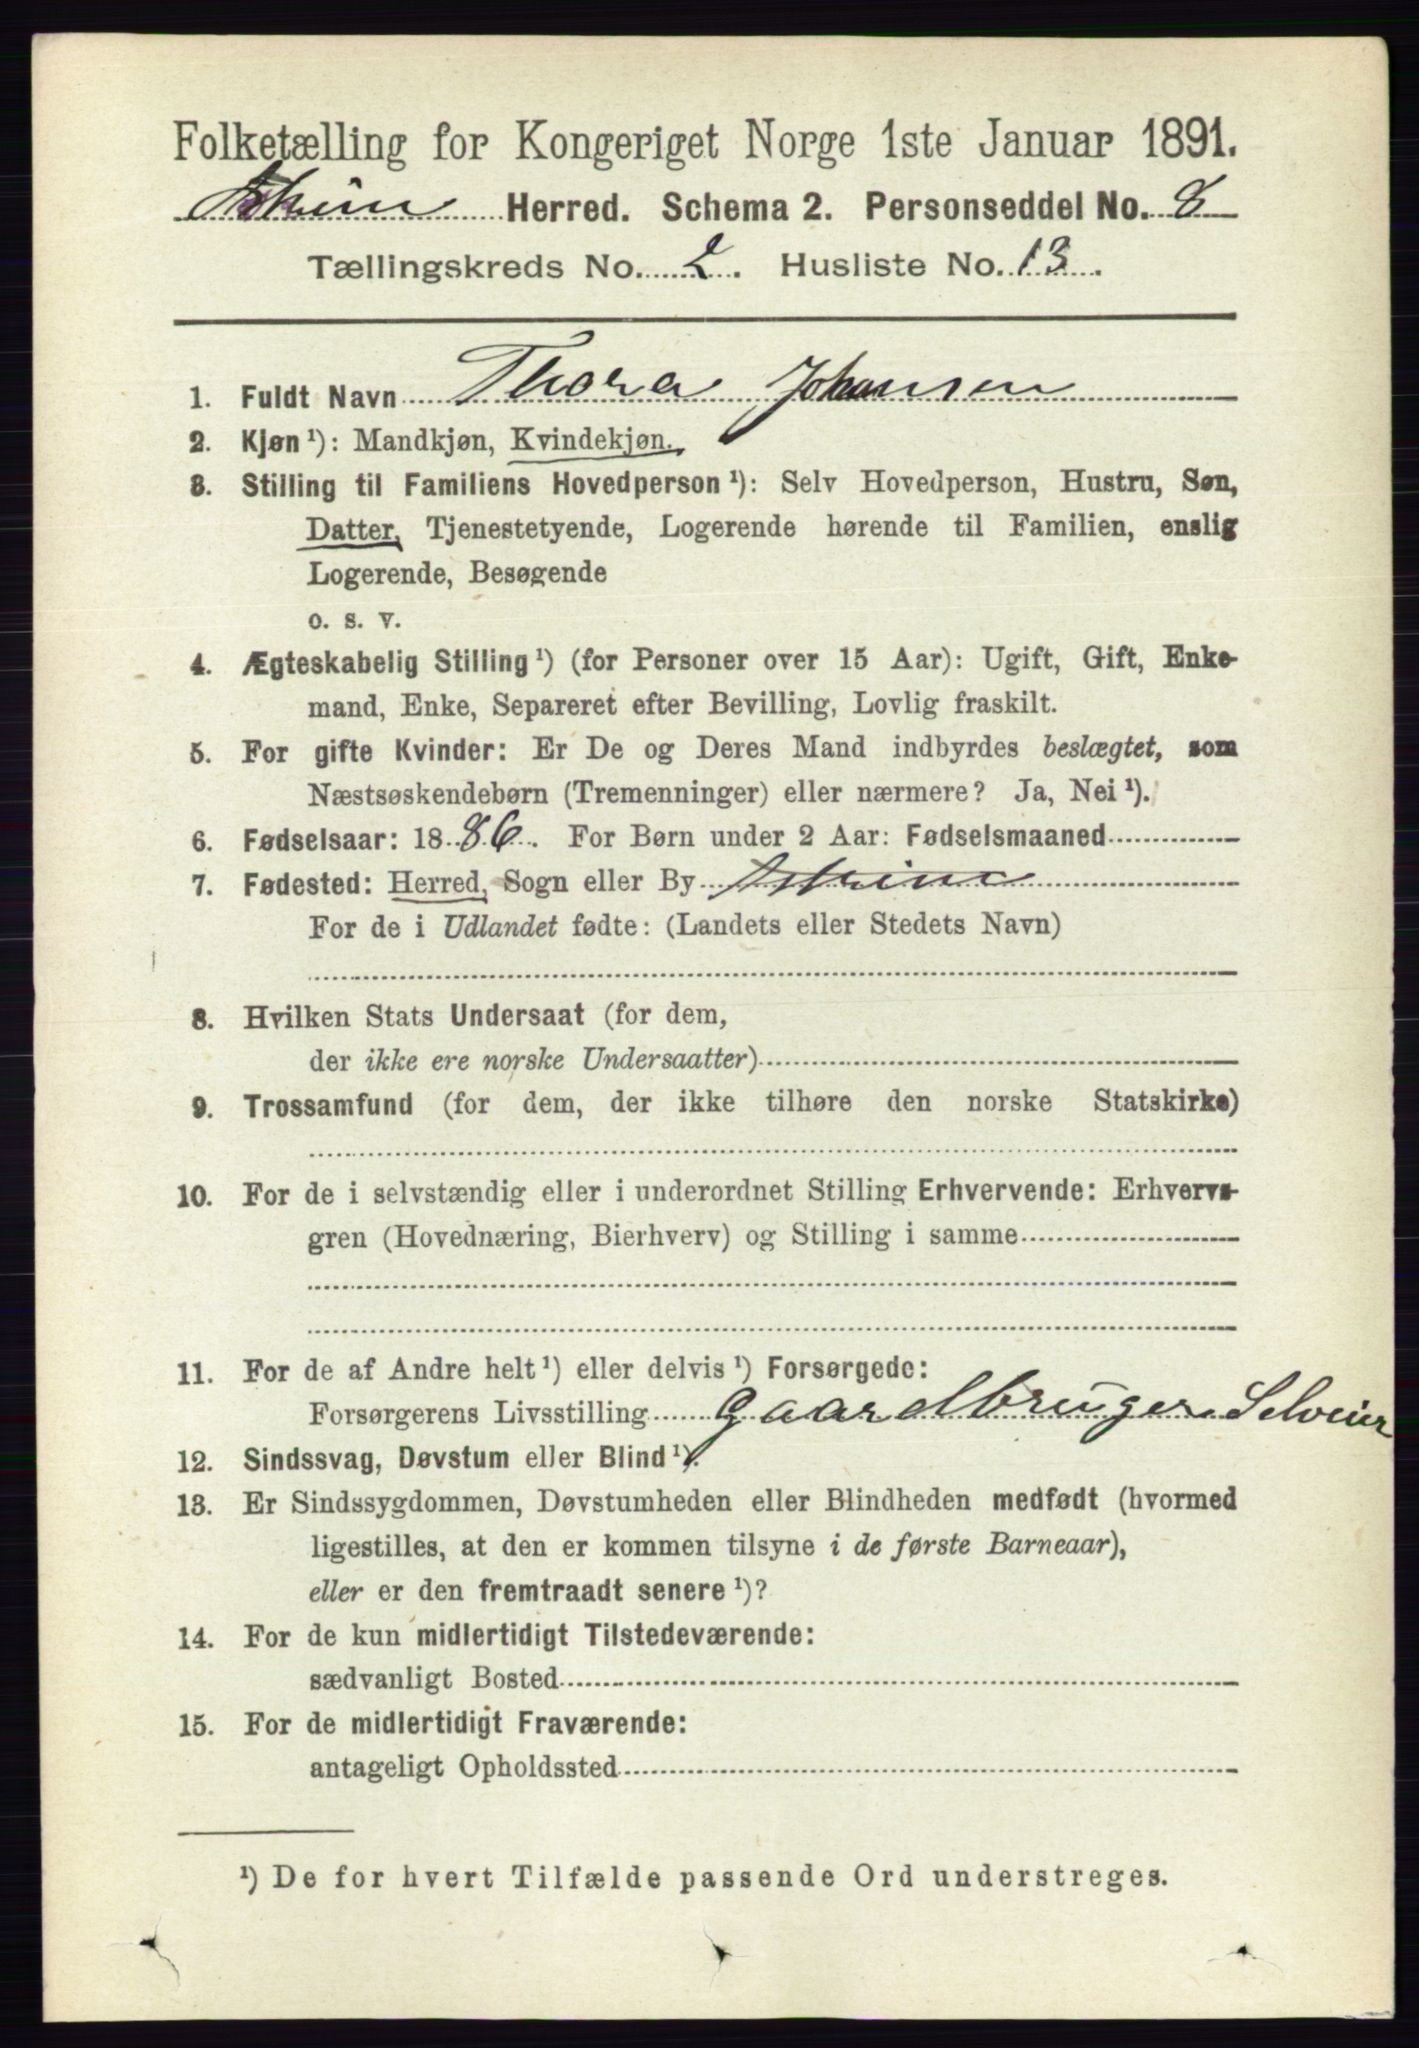 Folketælling for Kongeriget Norge 1ste Januar 1891.
Askim Herred. Schema 2. Personseddel No. 8
Tællingskreds No. 2. Husliste No. 13.
1. Fuldt Navn Thora Johansen
2. Kjøn ¹): Mandkjøn, Kvindekjøn.
3. Stilling til Familiens Hovedperson ¹): Selv Hovedperson, Hustru, Søn,
Datter, Tjenestetyende, Logerende hørende til Familien, enslig
Logerende, Besøgende
o. s. v.
4. Ægteskabelig Stilling ¹) (for Personer over 15 Aar): Ugift, Gift, Enke-
mand, Enke, Separeret efter Bevilling, Lovlig fraskilt.
5. For gifte Kvinder: Er De og Deres Mand indbyrdes beslægtet, som
Næstsøskendebørn (Tremenninger) eller nærmere? Ja, Nei ¹).
6. Fødselsaar: 1886. For Børn under 2 Aar: Fødselsmaaned
7. Fødested: Herred, Sogn eller By Askim
For de i Udlandet fødte: (Landets eller Stedets Navn)
8. Hvilken Stats Undersaat (for dem,
der ikke ere norske Undersaatter)
9. Trossamfund (for dem, der ikke tilhøre den norske Statskirke)
10. For de i selvstændig eller i underordnet Stilling Erhvervende: Erhvervs-
gren (Hovednæring, Bierhverv) og Stilling i samme
11. For de af Andre helt ¹) eller delvis ¹) Forsørgede:
Forsørgerens Livsstilling Gaardbruger Selveier
12. Sindssvag, Døvstum eller Blind ¹).
13. Er Sindssygdommen, Døvstumheden eller Blindheden medfødt (hvormed
ligestilles, at den er kommen tilsyne i de første Barneaar),
eller er den fremtraadt senere ¹)?
14. For de kun midlertidigt Tilstedeværende:
sædvanligt Bosted
15. For de midlertidigt Fraværende:
antageligt Opholdssted
¹) De for hvert Tilfælde passende Ord understreges.